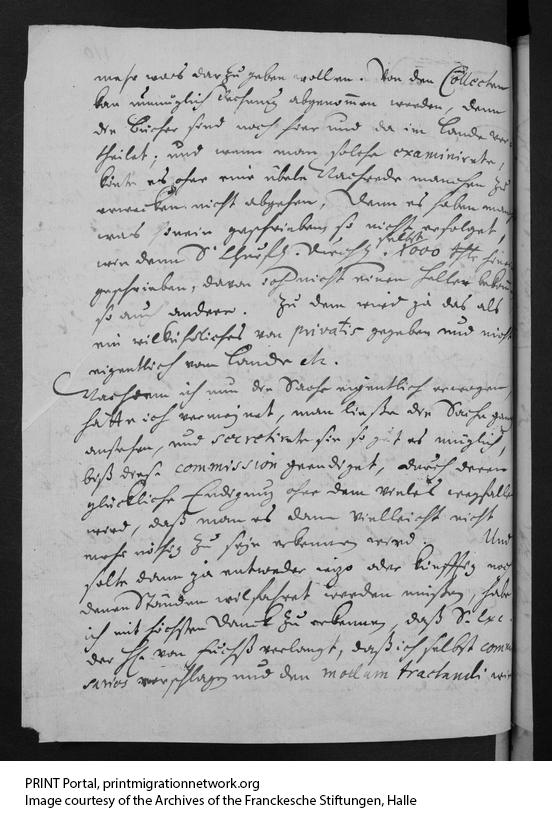 mehr was darzu geben wollen. Von den Collecten
kan unmüglich Rechnung abgenommen werden, denn
die Bücher sind noch hier und da im Lande ver-
theilet; und wenn man solche examinirete,
könte es ohne eine üble Nachrede manchen zu
erwecken nicht abgehen, denn es haben manche
was hinein geschrieben, so nicht erfolget,
wie denn Sr. Churfl. Durchl. selbst 1000 thl. hinein
geschrieben, davon ich nicht einen Heller bekommen
so auch andere. Zu dem wird ja das als
ein willkührliches von privatis gegeben und nicht
eigentlich vom Lande etc.
Nachdem ich nun die Sache eigentlich erwogen,
hätte ich vermeinet, man ließe die Sache ganz
anstehen, und secretirete sie so gut es müglich,
biß diese commission geendiget, durch deren
glückliche Endigung ohne dem vieles wegfallen
wird, daß man es dann vielleicht nicht
mehr nöthig zu seyn erkennen wird. Und
solte dann ja entweder itzo oder künfftig noch
denen Ständen wilfahret werden müßen, habe
ich mit höchsten Danck zu erkennen, daß Sr. Exc.
der H. von Fuchß verlangt, daß ich selbst commis-
sarios vorschlagen und den modum tractandi wie
PRINT Portal, printmigrationnetwork.org
Image courtesy of the Archives of the Franckesche Stiftungen, Halle